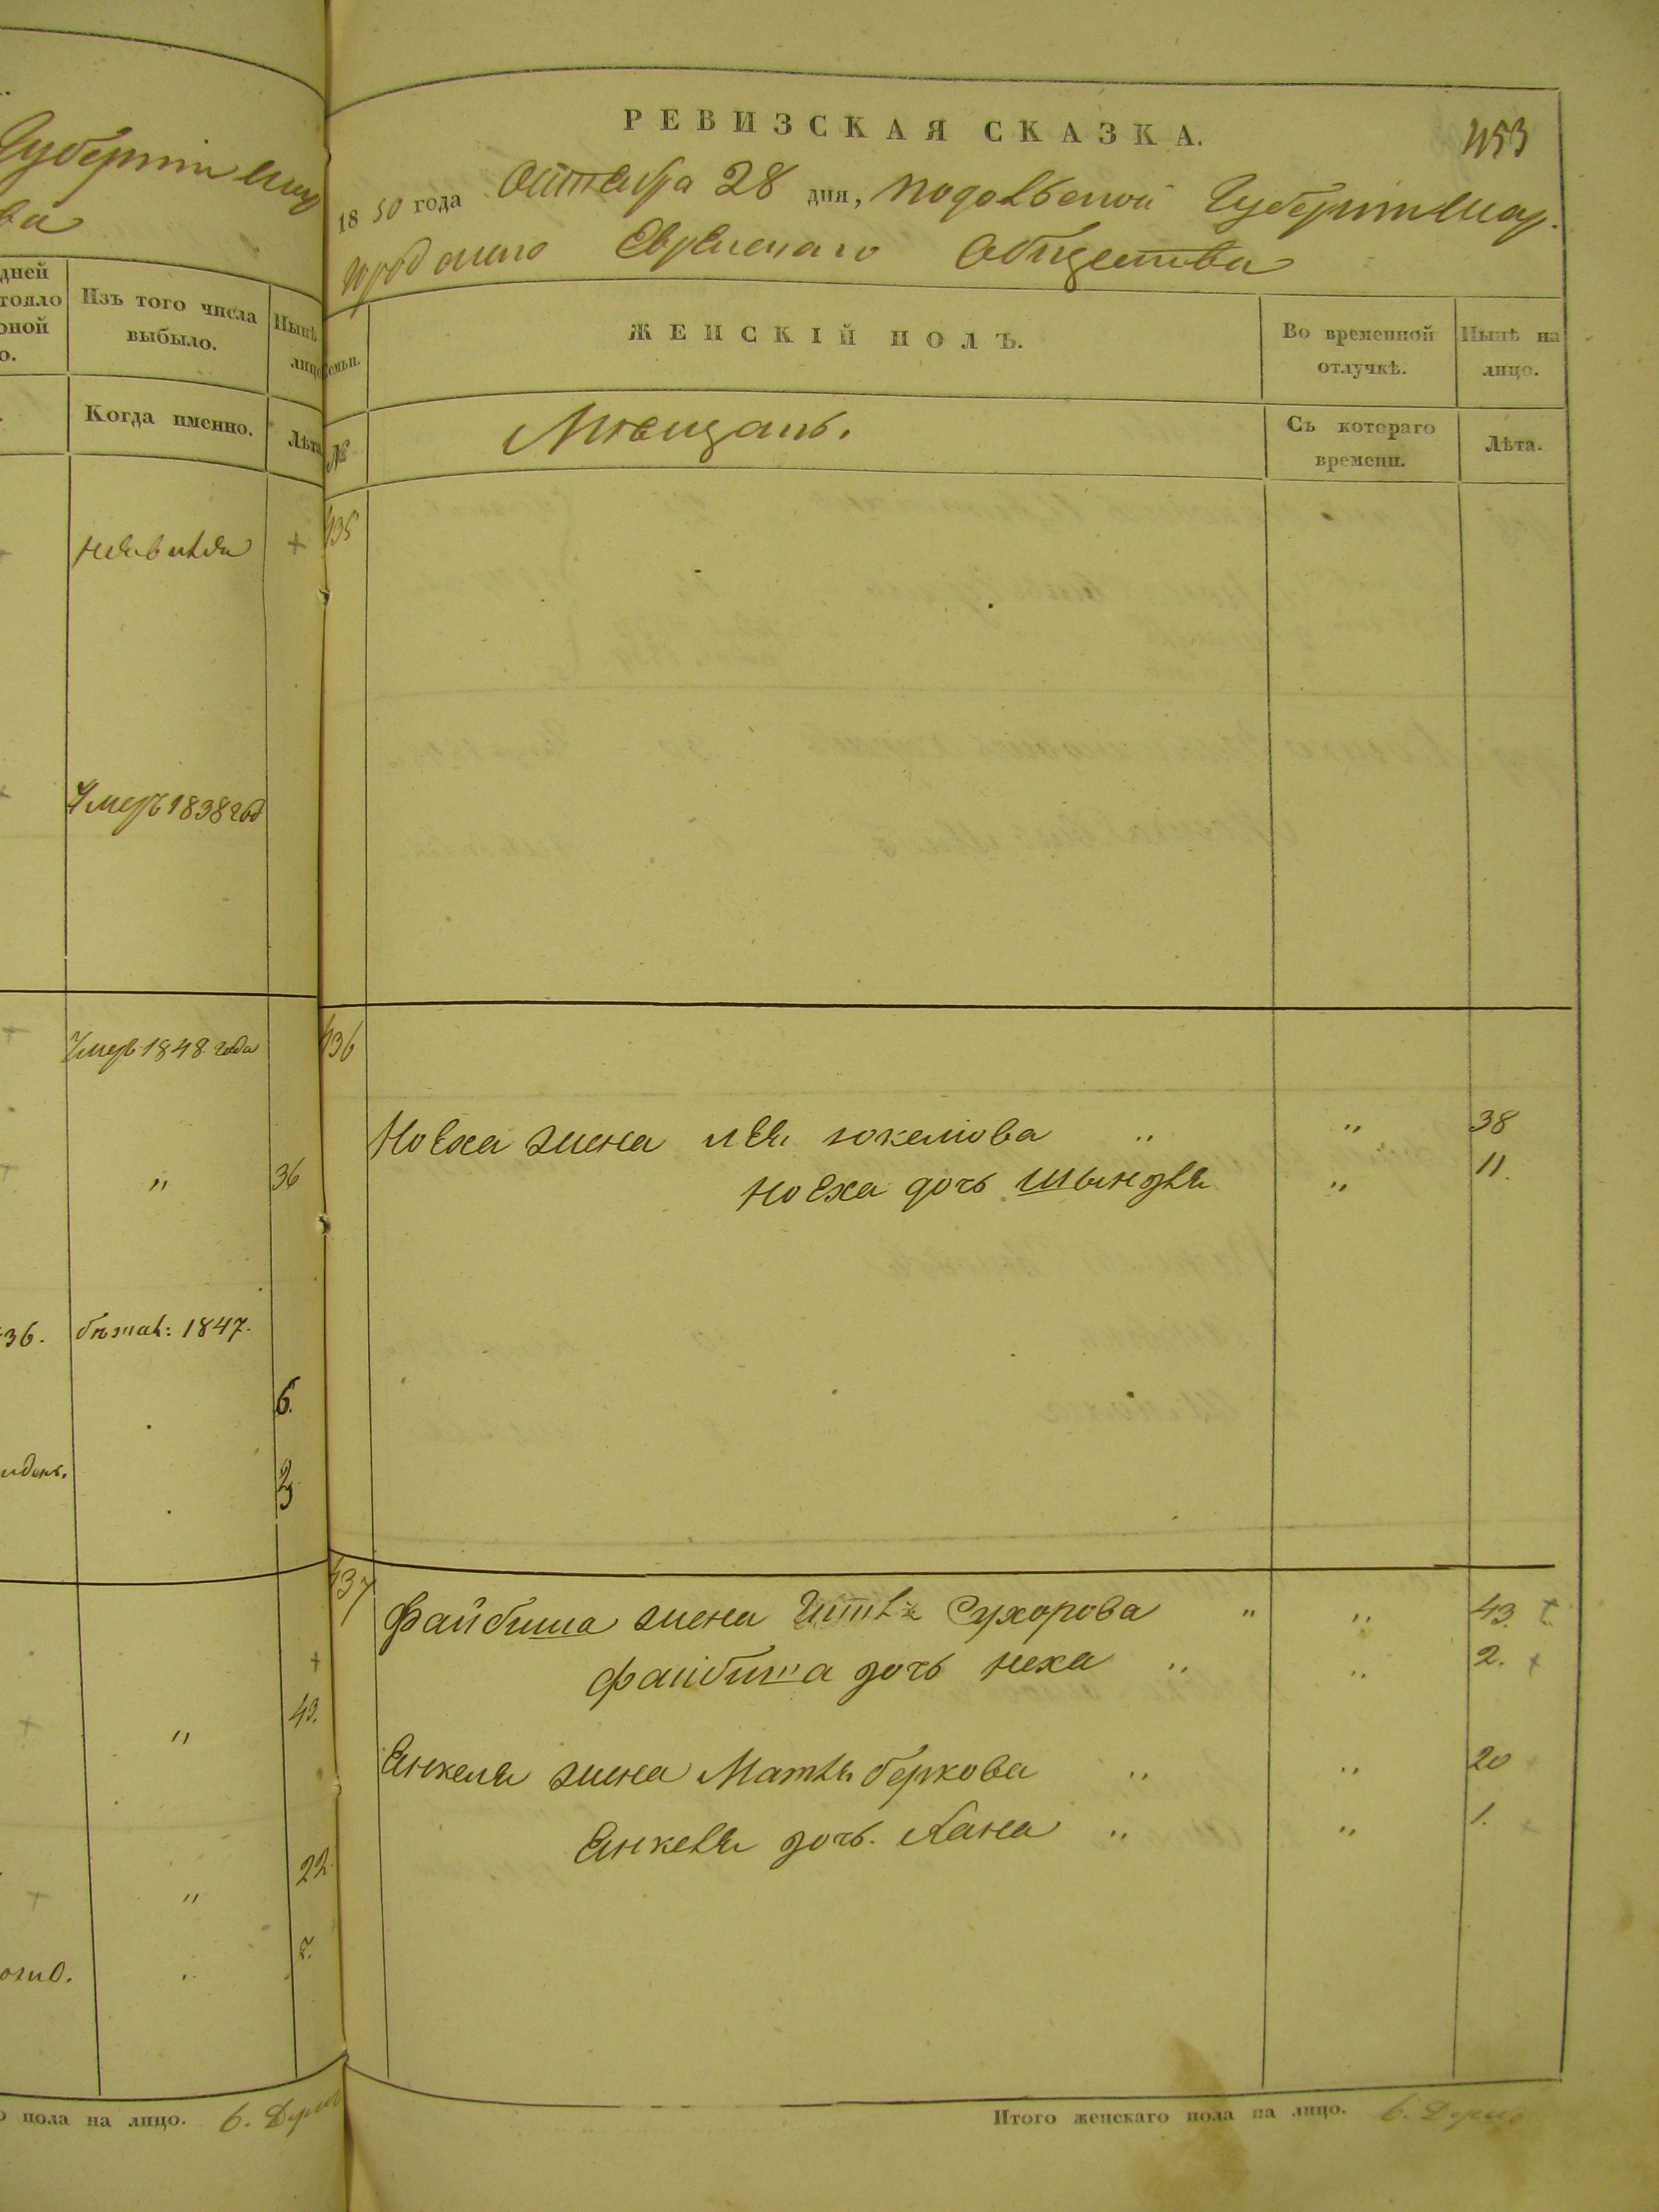 Губерніи Шар
ва
дней
тояло
оной
о.
Изъ того числа
выбыло.
Нынѣ
лицо
Когда именно.
Лѣта
неявился +
Умеръ 1838 год
Умеръ 1848 года
" 36
36. бѣжал: 1847.
6.
3
+
43.
"
22
"
о пола на лицо. 6. Душъ
РЕВИЗСКАЯ СКАЗКА.
453
1850 года Октября 28 дня, Подольской Губерніи Шар.
городского Еврейскаго Общества
семьи.
ЖЕНСКІЙ ПОЛЪ.
Во временной
отлучкѣ.
Нынѣ на
лицо.
№
Мѣщанъ.
Съ котораго
времени.
Лѣта.
435
436
Ноеха жена Лея Іокелiова " " 38
Ноеха дочь Шындля " 11.
437
Файбиша жена Сухорова " " 43. +
Файбиша дочь Неха " " 2. +
Янкеля жена Матля Беркова " " 20 +
Янкеля дочь. Хана " " 1. +
Итого женскаго пола на лицо. 6. Душъ